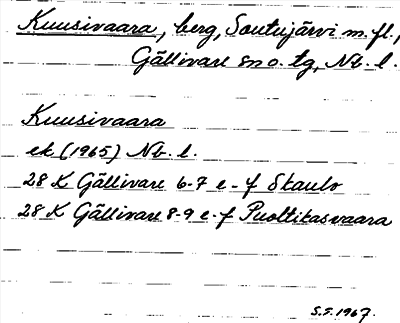 Kuusivaara, berg, Soutujärvi m.fl.,
Gällivare sn o. tg, Nb. l.
Kuusivaara
ek (1965) Nb. l.
28 K Gällivare 6-7 e-f Skaulo
28 K Gällivare 8-9 e-f Puoltikasvaara
S.S. 1967.